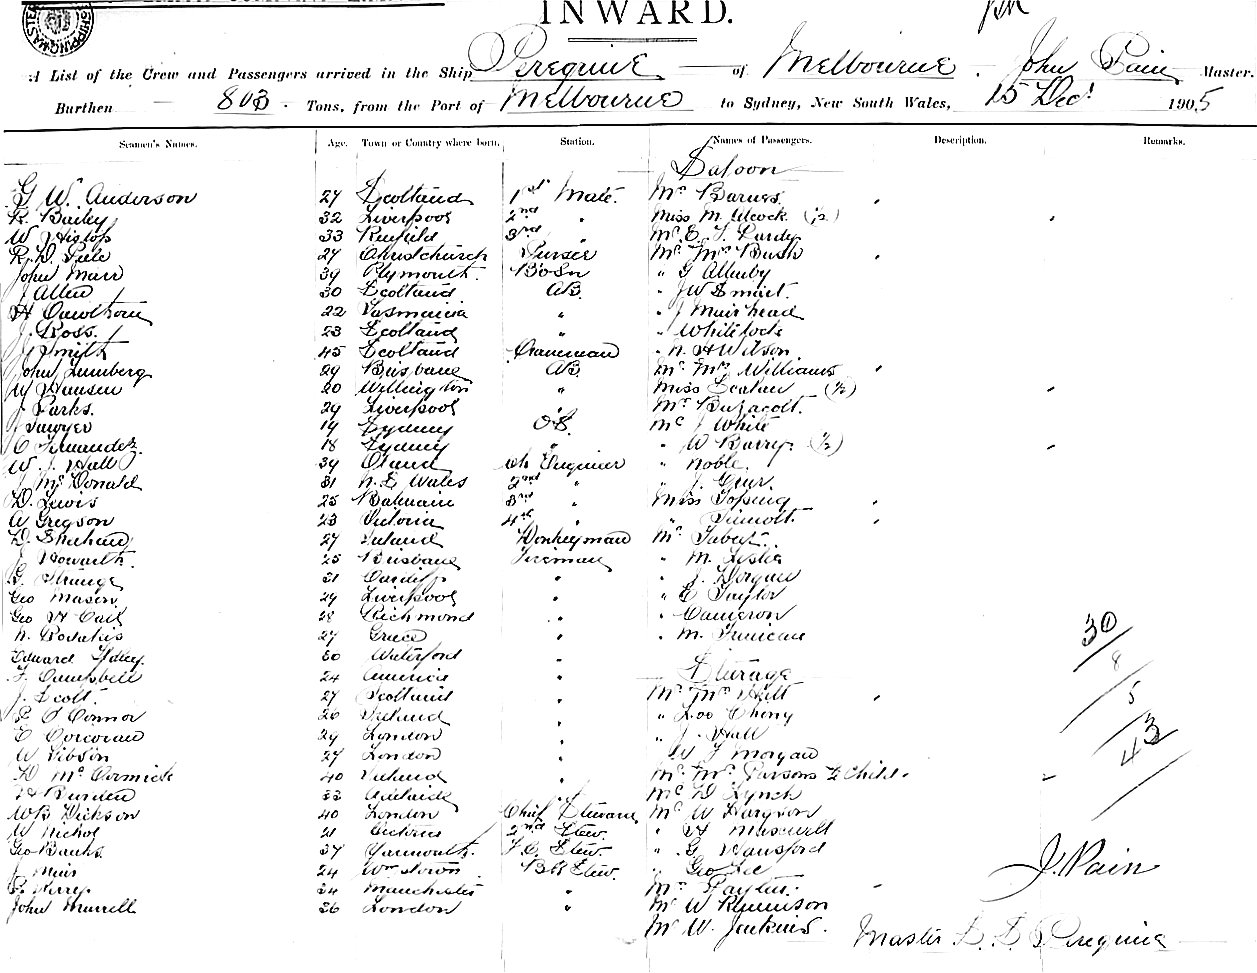 INWARD.
A List of the Crew and Passengers arrived in the Ship Peregrine of Melbourne. John Pain Master.
Burthen 803 Tons, from the Port of Melbourne to Sydney, New South Wales, 15 Decr 1905
Seamen's Names. Age. Town or Country where born. Station. Names of Passengers. Description. Remarks.
Saloon
G W Anderson 27 Scotland 1st Mate. Mr Barnes
R. Bailey 32 Liverpool 2nd " Miss M. Alcock (½)
W Hislop 33 3rd " Mr E. J. Purdy
R. D. Peele 27 Christchurch Purser Mr Mrs Bush
John Marr 39 Plymouth. BoSn " G Allenby
J Allen 30 Scotland AB. " J W Smart.
H Cawthorn 22 Tasmania " " J Muirhead
J. Ross. 23 Scotland " " Whitelock
J Smith 45 Scotland " N. H Wilson.
John Lumberg 29 Brisbane AB. Mr Mrs Williams
W Hansen 20 Wellington " Miss (½)
J Parks. 29 Liverpool Mr Buzacott.
J Sawyer 19 Sydney O.S. Mr J White
C Fernandez. 18 Sydney " " W Barry. (½)
W. J. Hall 39 Ch Engineer " Noble.
J McDonald 31 N. S Wales 2nd " " J.
D. Lewis 25 Balmain 3rd " Miss Topping
W Gregson 23 Victoria 4th "
D Sheehan 27 Ireland Donkeyman Mr
J. Howarth. 25 Brisbane Fireman " M. Leslie
G. Strange 31 Cardiff " " J. Dorgan
Geo Mason. 29 Liverpool " " E Taylor
Geo H Cail 28 Richmond " " Cameron
N. Rodakis 27 Greece " " M.
Edward 30 Waterford " Steerage
F. Campbell 24 America "
J. Scott. 27 Scotland " Mr Mrs Hill
P O'Connor 26 Ireland " " Loo Chong
E Corcoran 29 London " " J. Hall
W Gibson 27 London " W J Morgan
D McCormick 40 Ireland " Mr Mrs Parsons & Child.
H Burden 33 Adelaide " Mr D Lynch
WB Dickson 40 London Chief Steward Mr W
W Nichol 21 2nd Stew. " H Maxwell
Geo Banks. 37 Yarmouth. F.C. Stew. " G. Hansford
J Muir 24 Wmstown. Stew. " Geo Lee
P. Kerry 34 Manchester " Mr
John Murrell 36 London " Mr W
Mr W. Jenkins.
30
8
5
43
J. Pain
Master S. S. Peregrine